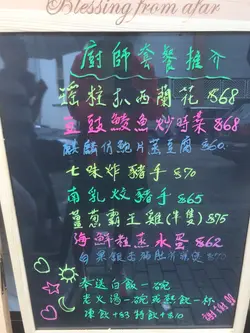 Blessing from afar
廚師套餐推介
瑤柱扒西蘭花 $68
豆豉鯪魚炒時菜 $68
麒麟 片蒸豆腐 $60
七味炸豬手 $70
南乳炆豬手 $65
薑蔥霸王雞(半隻) $75
海鮮粒蒸水蛋 $62
白果
奉送白飯一碗
老火湯一碗或熱飲一杯
凍飲+$3 特飲+$10